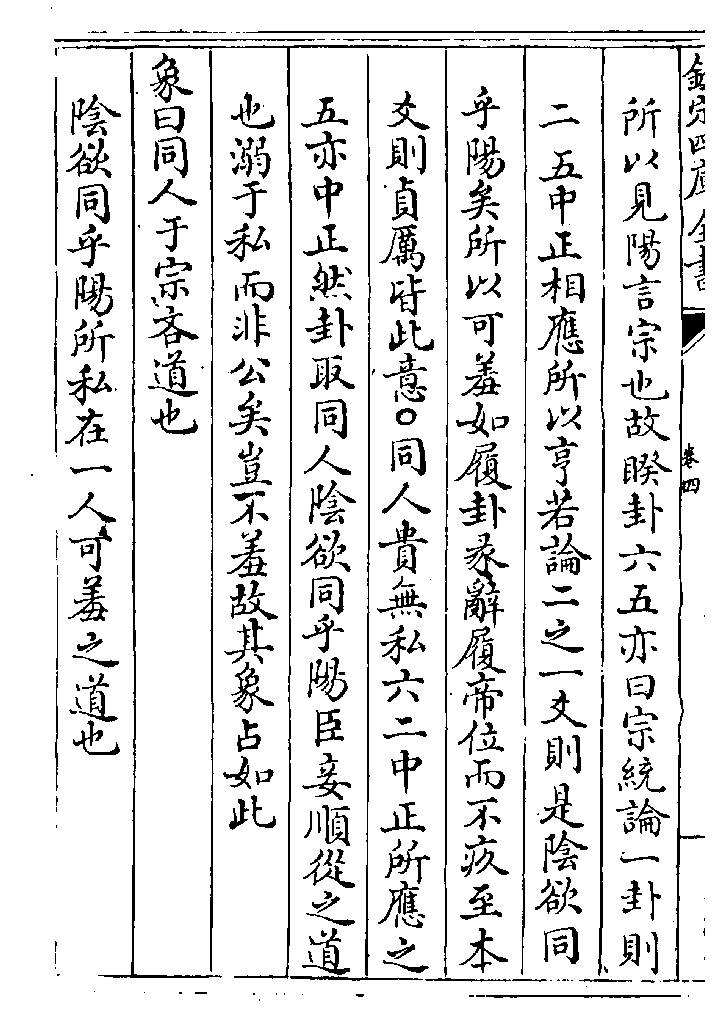 欽定四庫全書
卷四
所以見陽言宗也故睽卦六五亦曰宗統論一卦則
二五中正相應所以亨若論二之一爻則是陰欲同
乎陽矣所以可羞如履卦彖辭履帝位而不疚至本
爻則貞厲皆此意○同人貴無私六二中正所應之
五亦中正然卦取同人陰欲同乎陽臣妾順從之道
也溺于私而非公矣豈不羞故其象占如此
象曰同人于宗吝道也
陰欲同乎陽所私在一人可羞之道也